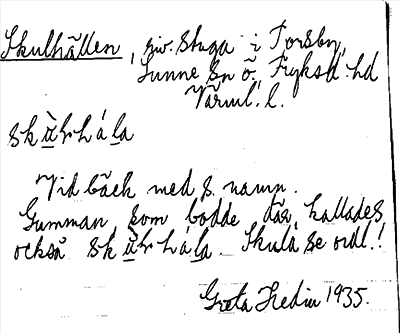 Skulhällen, riv. stuga i Torsby,
Sunne sn Ö. Fryksd. hd
Värml. l.
Vid bäck med s. namn.
Gumman som bodde där kallades
också Skula se ordl.!
Greta Hedin 1935.